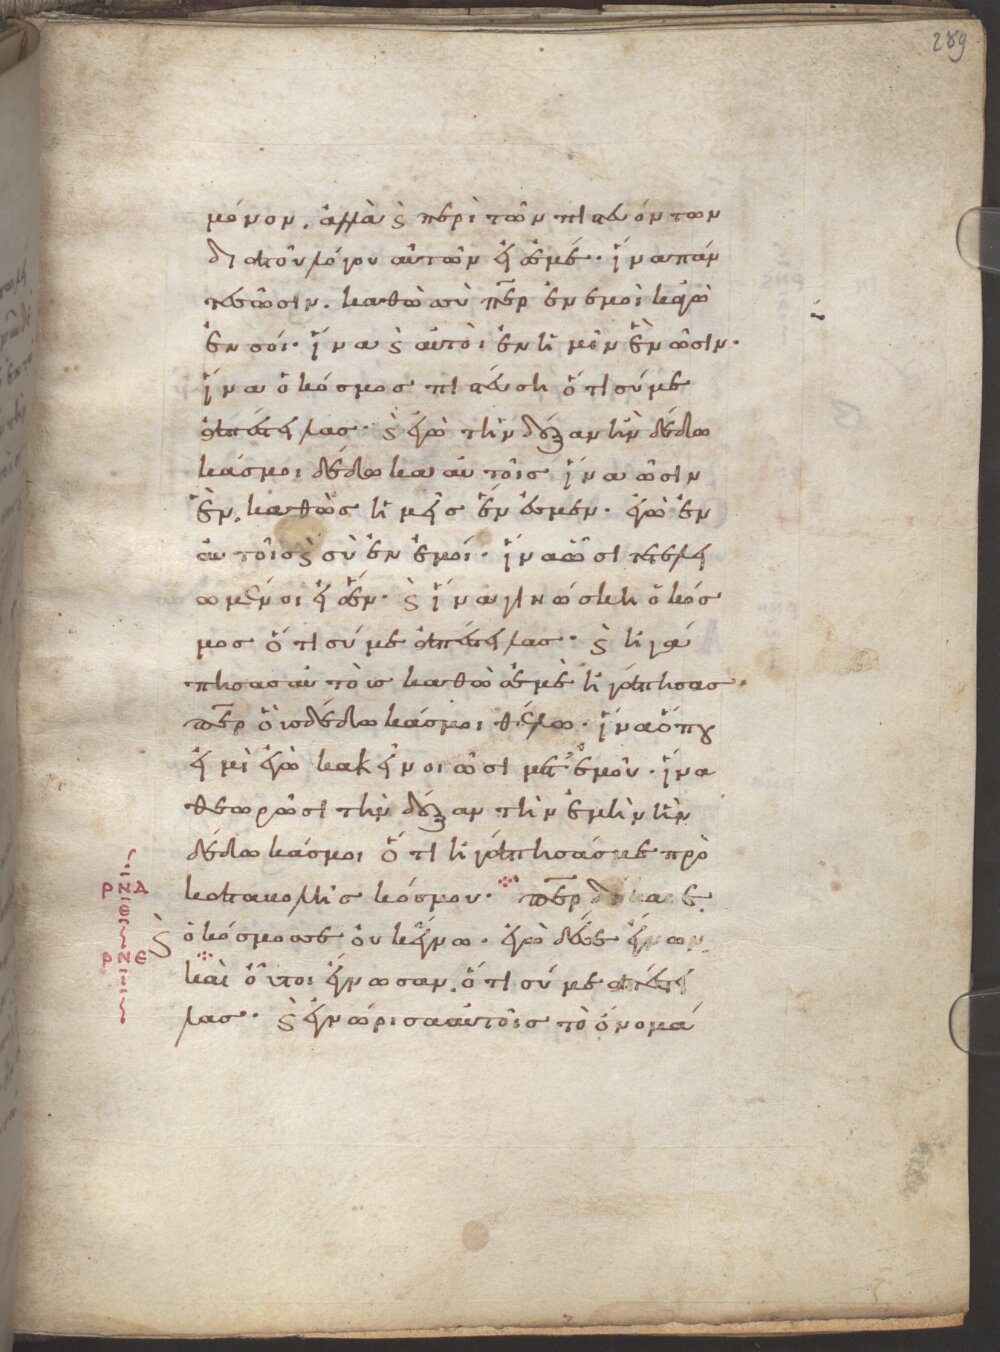 289
μόνον. ἀλλὰ ϛ περὶ τῶν πιστευόντων
διὰ τοῦ λόγου αὐτῶν εἰς ἐμέ· ἵνα πάν
τες ὦσιν. καθὼς σὺ περ ἐν ἐμοὶ κἀγὼ
ἐν σοί· ἵνα ϛ αὐτοὶ ἐν ἡμῖν ἓν ὦσιν·
ἵνα ὁ κόσμος πιστεύσῃ ὅτι σύ με
ἀπέστειλας· ϛ ἐγὼ τὴν δόξαν ἣν δέδω
κάς μοι δέδωκα αὐτοῖς ἵνα ὦσιν
ἕν, καθὼς ἡμεῖς ἕν ἐσμεν· ἐγὼ ἐν
αὐτοῖς ϛ σὺ ἐν ἐμοί· ἵνα ὦσι τετελει
ωμένοι εἰς ἕν· ϛ ἵνα γινώσκῃ ὁ κόσ
μος ὅτι σύ με ἀπέστειλας· ϛ ἠγά
πησας αὐτοὺς καθὼς ἐμὲ ἠγάπησας·
περ οὓς δέδωκάς μοι θέλω· ἵνα ὅπου
εἰμὶ ἐγὼ κἀκεῖνοι ὦσι μετ' ἐμοῦ· ἵνα
θεωρῶσι τὴν δόξαν τὴν ἐμὴν ἣν
δέδωκάς μοι ὅτι ἠγάπησάς με πρὸ
ΡΝΔ καταβολῆς κόσμου· περ δίκαιε
Ι
ϛ ὁ κόσμος σε οὐκ ἔγνω· ἐγὼ δέ σε ἔγνων
ΡΝΕ καὶ οὗτοι ἔγνωσαν. ὅτι σύ με ἀπέστει
Ι
λας· ϛ ἐγνώρισα αὐτοῖς τὸ ὄνομά